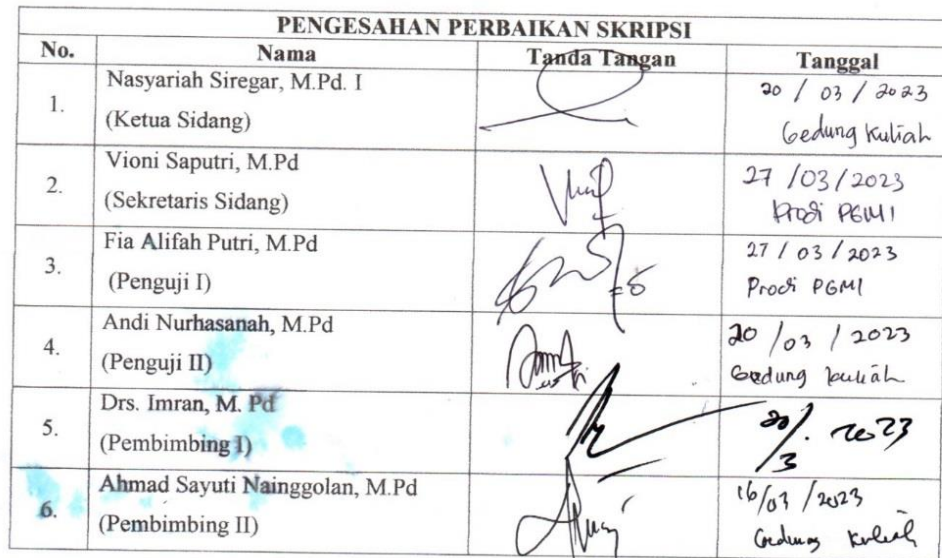 PENGESAHAN PERBAIKAN SKRIPSI
No. Nama Tanda Tangan Tanggal
1. Nasyariah Siregar, M.Pd. I
(Ketua Sidang)
20 / 03 / 2023
Gedung Kuliah
2. Vioni Saputri, M.Pd
(Sekretaris Sidang)
27 / 03 / 2023
Prodi PGMI
3. Fia Alifah Putri, M.Pd
(Penguji I)
27 / 03 / 2023
Prodi PGMI
4. Andi Nurhasanah, M.Pd
(Penguji II)
20 / 03 / 2023
Gedung kuliah
5. Drs. Imran, M. Pd
(Pembimbing I)
20/3. 2023
6. Ahmad Sayuti Nainggolan, M.Pd
(Pembimbing II)
16/03 / 2023
Gedung kuliah